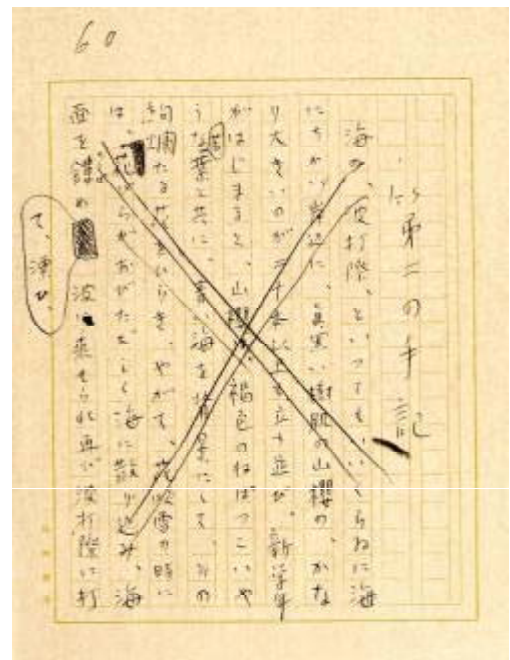 60
第二の手記
海の、波打際、といつてもいいくらゐに海
にちかい岸辺に、眞黒い樹肌の山櫻の、かな
り大きいのが二十本以上も立ち並び、新学年
がはじまると、山櫻は、褐色のねばつこいや
うな葉と共に、青い海を背景にして、その
絢爛たる花をひらき、やがて、花吹雪の時に
は、花びらがおびただしく海に散り込み、海
面を鏤め波に乗せられ再び波打際に打
て、漂ひ、